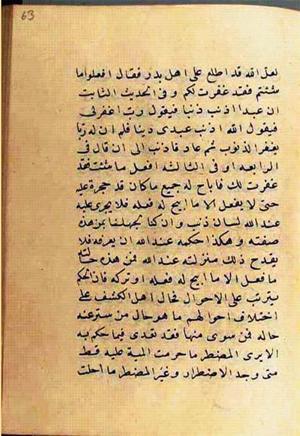 63
لعل الله قد اطلع على اهل بدر فقال افعلوا ما
شئتم فقد غفرت لكم وفى الحديث الثابت
ان عبدا اذنب ذنبا فيقول رب اغفرلى
فيقول الله اذنب عبدى ذنبا فعلم ان له ربا
يغفر الذنوب ثم عاد فاذنب الى ان قال فى
الرابعه او فى الثالثه افعل ما شئت فقد
غفرت لك فاباح له جميع ماكان قد حجره عليه
حتى لا يفعل الا ما ابيح له فعله فلا يجرى عليه
عند الله لسان ذنب وان كنا نجهلنا بمن هذه
صفته وهكذا حكمه عند الله ان يعرفه فلا
يقدح ذلك فى منزلته عند الله فمن هذه حالته
ما فعل الا ما ابيح له فعله او تركه فان الحكم
يترتب على الاحوال فحال اهل الكشف على
اختلاف احوالهم ما هو حال من ستر عنه
حاله فمن سوى بينهما فقد تعدى فيما حكم به
الا يرى المضطر ما حرمت الميتة عليه قط
متى وجد الاضطرار وغير المضطر ما احلت